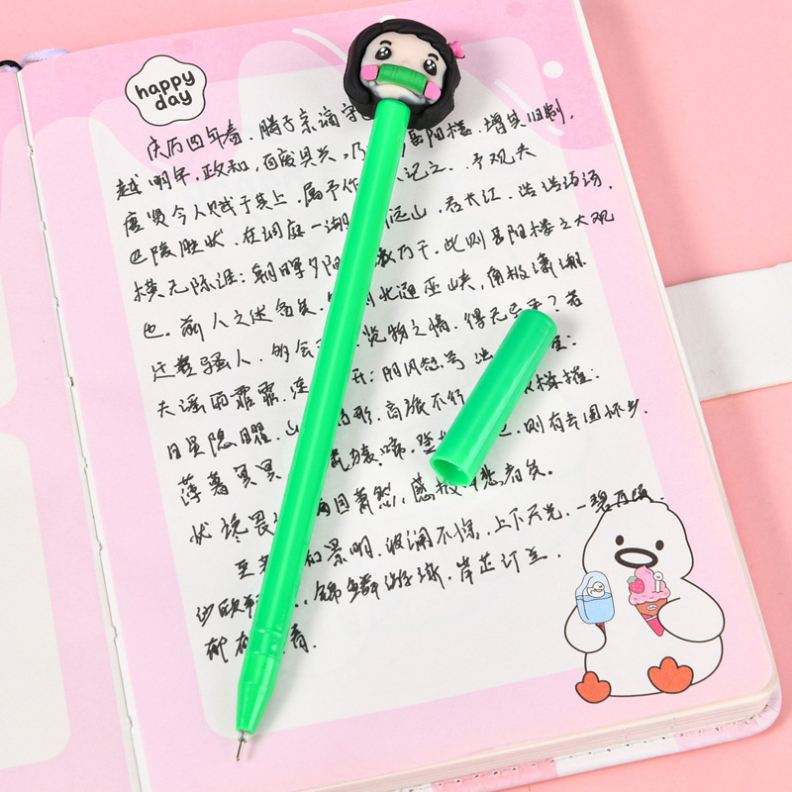 happy
day
庆历四年春,滕子京谪守 岳阳楼,增其旧制,
越明年,政和,百废具兴,乃
唐贤今人赋于其上,属予作 记之。予观夫
巴陵胜状,在洞庭一湖 远山,吞长江,浩浩汤汤,
横无际涯;朝晖夕阴 万千,此则岳阳楼之大观
也,前人之述备矣, 北通巫峡,南极潇湘
迁客骚人,多会 览物之情,得无异乎?若
夫淫雨霏霏,连 开;阴风怒号
日星隐曜,山 形,商旅不行 樯摧;
薄暮冥冥 猿啼,登 则有去国怀乡,
满目萧然,感极 悲者矣。
至 和景明,波澜不惊,上下天光,一碧万顷,
沙鸥 锦鳞游 岸芷汀兰,
郁 青。